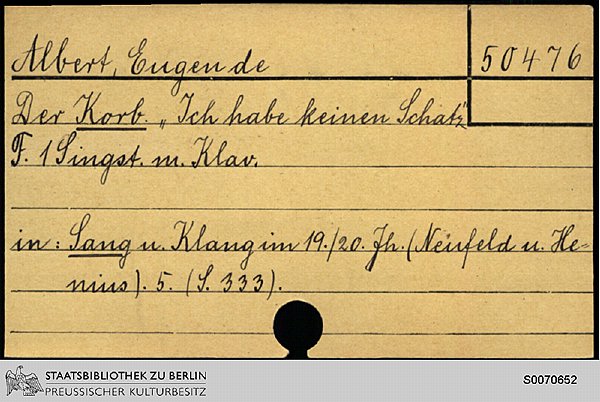 Albert, Eugen de
50476
Der Korb. „Ich habe keinen Schatz“
F. 1 Singst. m. Klav.
in: Sang u. Klang im 19./20. Jh. (Neufeld u. He-
nius). 5. (S. 333).
STAATSBIBLIOTHEK ZU BERLIN
PREUSSISCHER KULTURBESITZ
S0070652